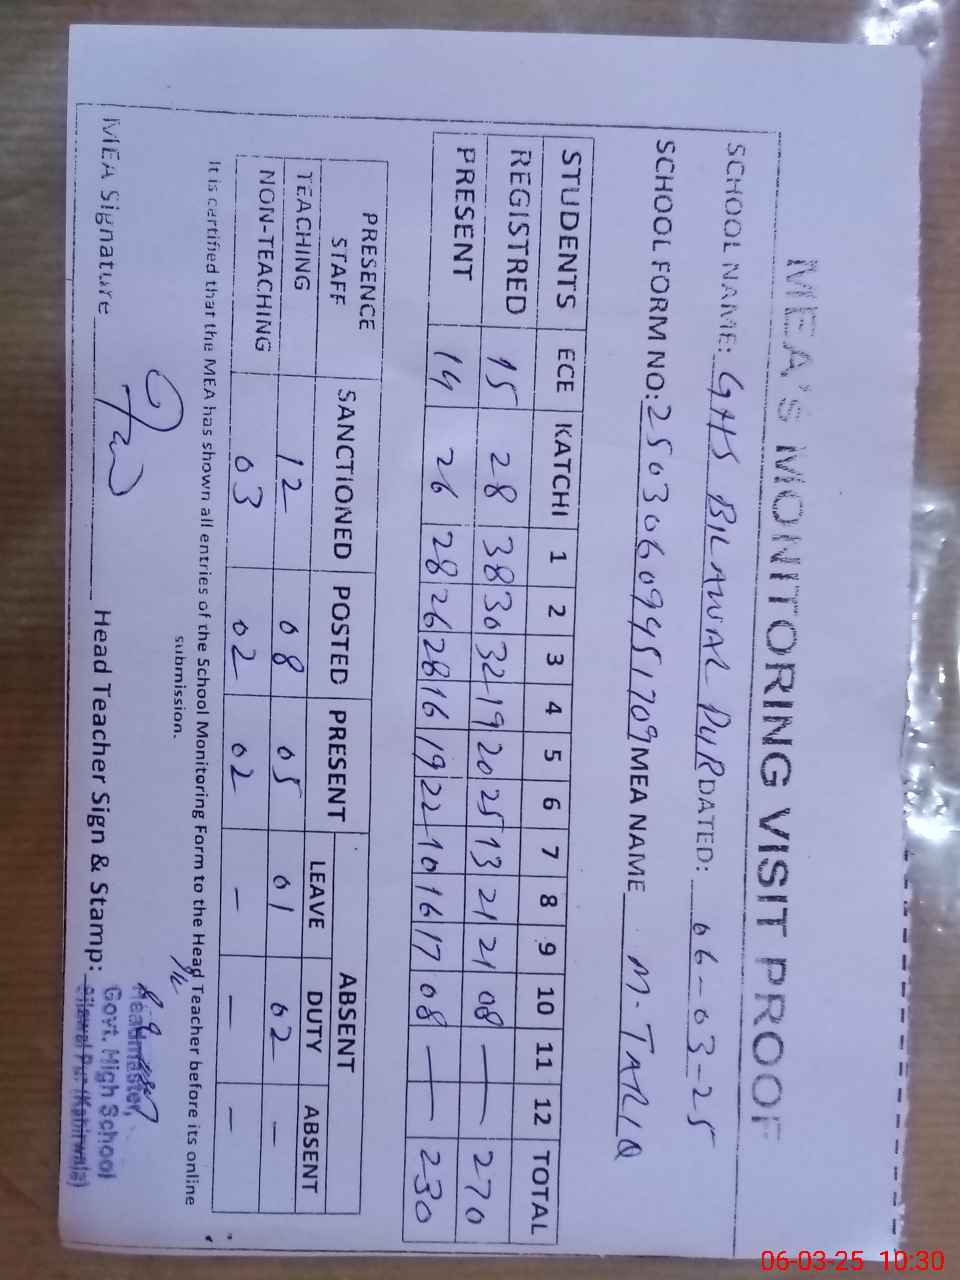 MEA'S MONITORING VISIT PROOF
SCHOOL NAME: GHS BILAWAL PUR DATED: 06-03-25
SCHOOL FORM NO: 25030609451709 MEA NAME M. TARIQ
STUDENTS ECE KATCHI 1 2 3 4 5 6 7 8 9 10 11 12 TOTAL
REGISTRED 15 28 38 30 32 19 20 25 13 21 21 08 — — 270
PRESENT 14 26 28 26 28 16 19 22 10 16 17 08 — — 230
PRESENCE STAFF SANCTIONED POSTED PRESENT ABSENT
LEAVE DUTY ABSENT
TEACHING 12 08 05 01 02 -
NON-TEACHING 03 02 02 - - -
It is certified that the MEA has shown all entries of the School Monitoring Form to the Head Teacher before its online
submission.
MEA Signature Head Teacher Sign & Stamp:
Headmaster,
Govt. High School
Bilawal Pur (Kabirwala)
06-03-25 10:30